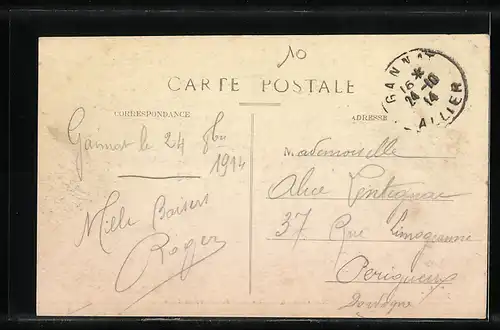 10
CARTE POSTALE
CORRESPONDANCE
ADRESSE
GANNAT
16 *
24-10
14
ALLIER
Gannat le 24 8bre
1914
Mille Baisers
Roger
Mademoiselle
Alice
37 Rue Limogeanne
Perigueux
Dordogne